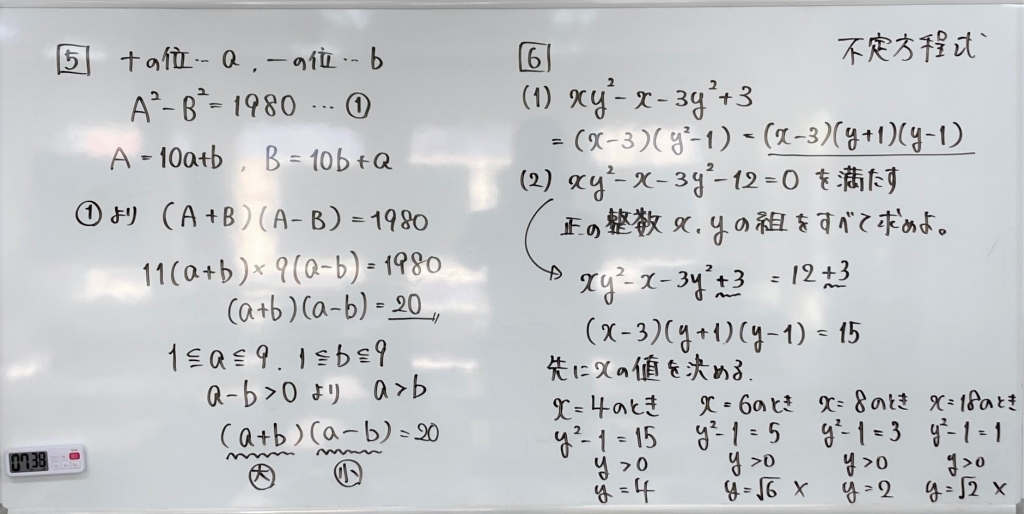 5 十の位…a, 一の位…b
A²-B²=1980 …①
A=10a+b, B=10b+a
①より (A+B)(A-B)=1980
11(a+b)×9(a-b)=1980
(a+b)(a-b)=20
1≦a≦9, 1≦b≦9
a-b>0 より a>b
(a+b)(a-b)=20
大 小
07:38
不定方程式
6
(1) xy²-x-3y²+3
=(x-3)(y²-1)=(x-3)(y+1)(y-1)
(2) xy²-x-3y²-12=0 を満たす
正の整数 x, yの組をすべて求めよ。
xy²-x-3y²+3 =12+3
(x-3)(y+1)(y-1)=15
先にxの値を決める.
x=4のとき x=6のとき x=8のとき x=18のとき
y²-1=15 y²-1=5 y²-1=3 y²-1=1
y>0 y>0 y>0 y>0
y=4 y=√6 × y=2 y=√2 ×